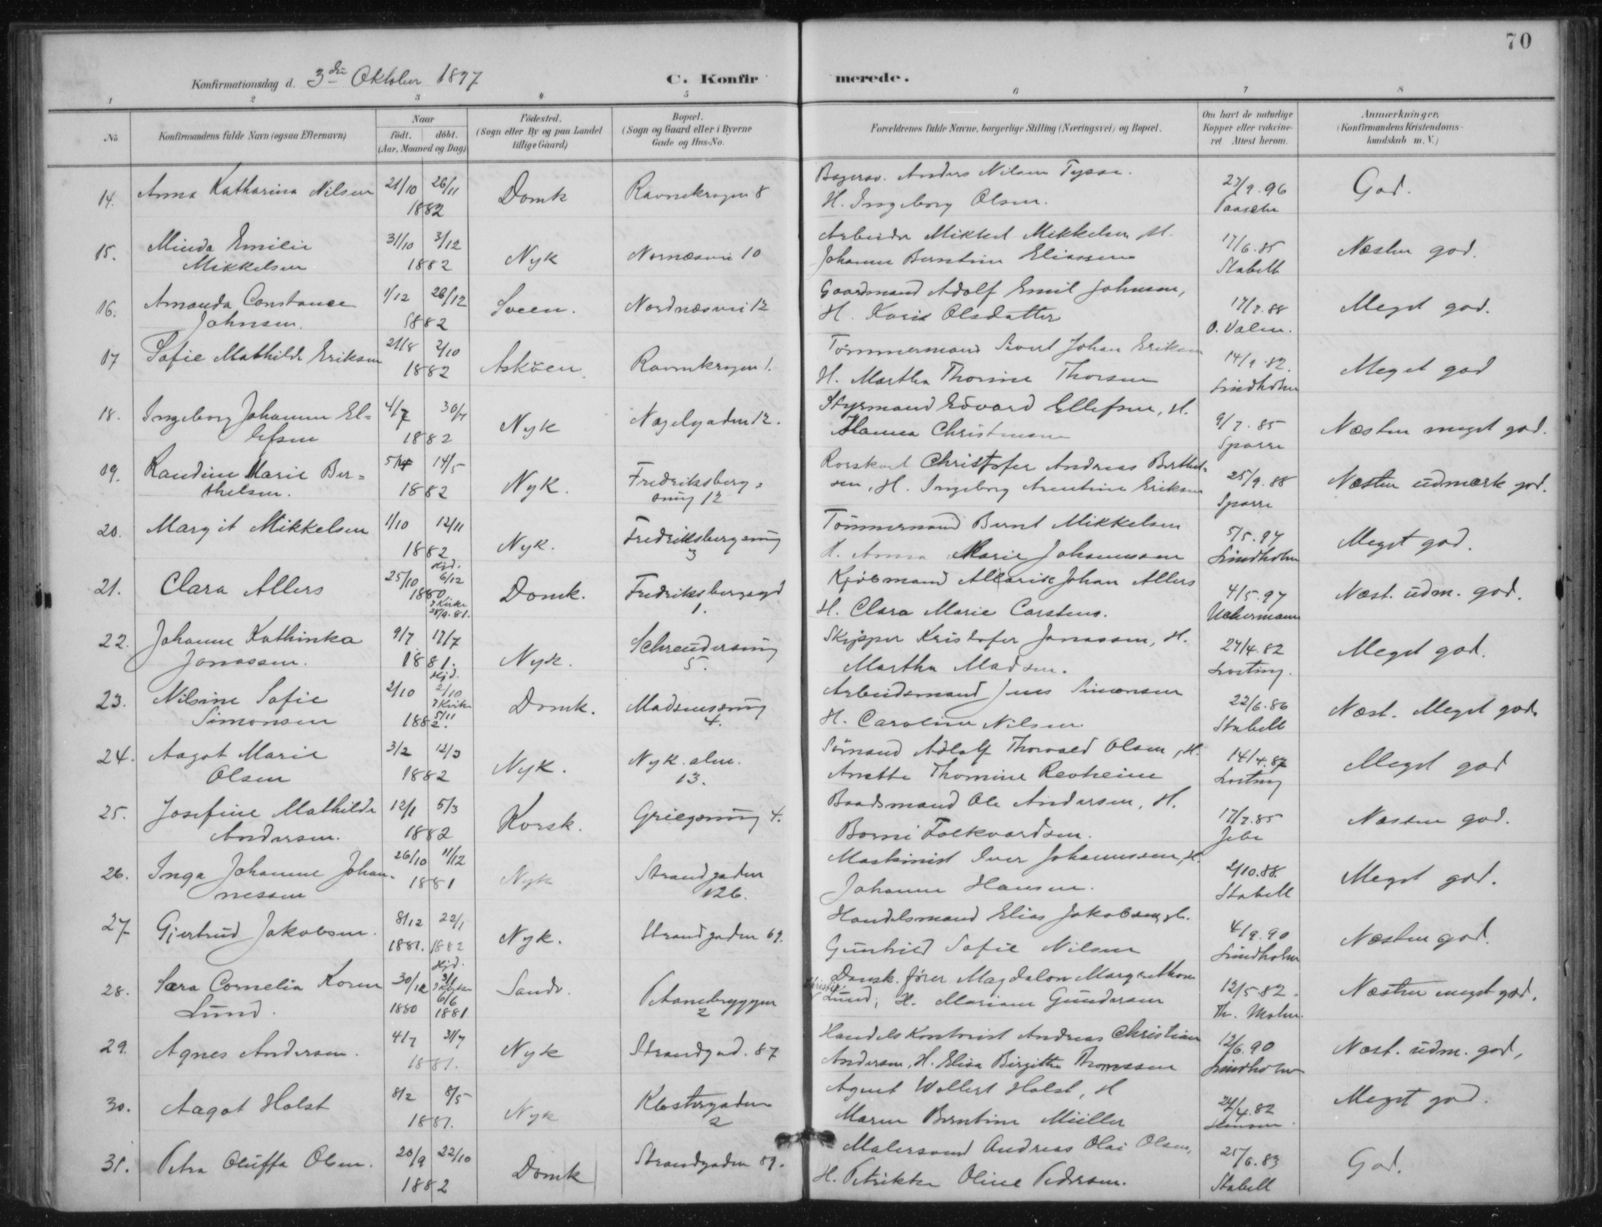 70
Konfirmationsdag d. 3die Oktober 1897
C. Konfirmerede.
1 2 3 4 5 6 7 8
No
Konfirmandens fulde Navn (ogsaa Efternavn)
Naar
født. døbt.
(Aar, Maaned og Dag)
Fødested.
(Sogn eller By og paa Landet tillige Gaard)
Bopæl.
(Sogn og Gaard eller i Byerne Gade og Hus-No.
Forældrenes fulde Navne, borgerlige Stilling (Næringsvei) og Bopæl.
Om havt de naturlige Kopper eller vaccineret Attest herom.
Anmerkninger.
(Konfirmandens Kristendomskundskab m. V.)
14. Anna Katharina Nilsen 21/10 26/11 1882 Domk Ravnekrogen 8
Anders Nilsen Tysse.
H. Ingeborg Olsen. 9.96 God.
15. Minda Emilie Mikkelsen 31/10 3/12 1882 Nyk 10
Arbeider Mikkel Mikkelsen, H.
Johanne Berntine Eliassen 17/6.85 Stabell Næsten god.
16. Amanda Constance Johnsen. 1/12 26/12 1882 Sveen. Nordnæsvei 12
Gaardmand Adolf Emil Johnsen,
H. Kari Olsdatter 17/7.88 O. Valen. Meget god.
17 Sofie Mathilde Eriksen 21/8 2/10 1882 Askøen. Ravnekrogen 1.
Tømmermand Sivert Johan Eriksen
H. Martha Thorine Thorsen 14/9.82. Lindholm Meget god
18. Ingeborg Johanne Ellefsen 4/7 30/7 1882 Nyk Nøgelgaden 12.
Styrmand Edvard Ellefsen, H.
Hanna Christensen 9/7.85 Sparre Næsten meget god.
19. Randine Marie Berthelsen. 14/5 1882 Nyk. Fredriksbergsmug 12
Christofer Andreas Berthelsen, H. Ingeborg Arentine Eriksen 25/9.88 Sparre Næsten udmærk god.
20. Margit Mikkelsen 1/10 12/11 1882 Nyk. Fredriksbergsmug 3
Tömmermand Bernt Mikkelsen
H. Anna Marie Johannessen 5/5.97 Lindholm Meget god.
21. Clara Allers 25/10 1880 Hjd. 6/12 i Kirke .81. Domk. Fredriksbergsgd 1.
Kjøbmand Johan Allers
H. Clara Marie Carstens. 4/5.97 Uchermann Næst. udm. god.
22. Johanne Kathinka Jonassen. 9/7 17/7 1881. Nyk. Schreudersmug 5
Skipper Kristofer Jonassen, H.
Martha Madsen. 27/4.82 Meget god.
23. Nilsine Sofie Simonsen 2/10 Hjd. 2/10 i Kirke 5/11 1882. Domk. Madsensmug 4.
Arbeidsmand Jens Simonsen
H. Caroline Nilsen 22/6.86 Stabell Næst. Meget god.
24. Aagot Marie Olsen 3/2 12/3 1882 Nyk. Nyk. alm. 13.
Sømand Adolf Thorvald Olsen, H.
Anette Thomine Revheim 14/4.87 Meget god
25. Josefine Mathilde Andersen. 12/1 5/3 1882 Korsk. Griegsmug 4.
Baadsmand Ole Andersen, H.
Folkvardsen. 17/7.85 Jebe Næsten god.
26. Inga Johanne Johannessen 26/10 11/12 1881 Nyk Strandgaden 126.
Maskinist Iver Johannessen, H.
Johanne Hansen. 2/10.88. Stabell Meget god.
27 Gjertrud Jakobsen. 8/12 1881. 22/1 1882 Nyk. Strandgaden 69.
Handelsmand Elias Jakobsen, H.
Gunhild Sofie Nilsen 4/9.90 Lindholm Næsten god.
28. Sara Cornelia Koren Lund. 30/12 1880 Hjd. 3/1 i Kirken 6/6 1881 Sandv. Altonabryggen 2
Dansk fører Magdalon
Lund, H. Mariane Gundersen 12/5.82. Th. Mohn Næsten meget god.
29. Agnes Andersen. 4/7 31/7 1881. Nyk Strandgad. 87
Handels Kontorist Andreas Christian
Andersen, H. Elisa Birgitte Thomassen 12/6.90 Lindholm Næst. udm. god,
30. Aagot Holst 8/2 8/5 1881. Nyk Klostergaden 2
Agent Wollert Holst, H
Maren Berntine Müller 24/4.82 Meget god.
31. Petra Oluffa Olsen. 20/9 22/10 1882 Domk Strandgaden 89.
Malersvend Andreas Olai Olsen,
H. Petrikke Oline Pedersen. 25/6.83 Stabell God.